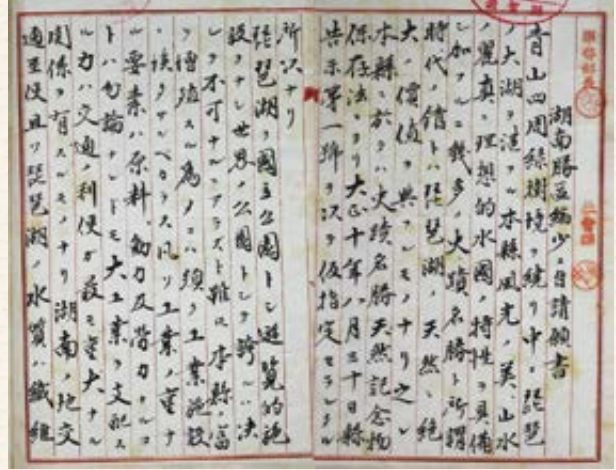 湖南勝区縮少ノ旨請願書
青山四周緑樹境ヲ繞リ中ニ琵琶
ノ大湖ヲ湛フル本縣風光ノ美、山水
ノ麗真ニ理想的水國ノ特性ヲ具備
シ加フルニ幾多ノ史蹟名勝ト所謂
時代ノ信トハ琵琶湖ノ天然ニ絶
大ノ價値ヲ與ヘシモノナリ之レ
本縣ニ於テハ史蹟名勝天然記念物
保存法ニヨリ大正十年八月三十日縣
告示第一號ヲ以テ仮指定セラレタル
所以ナリ
琵琶湖ヲ國立公園トシ遊覧的施
設ヲナシ世界ノ公園トシテ誇ルハ決
シテ不可ナルニアラズト雖モ本縣ノ富
ヲ増殖スル為メニハ須ク工業施設
ニ俟タザルベカラス凡ソ工業ノ重ナ
ル要素ハ原料動力及労力ナルコ
トハ勿論ナレドモ大工業ヲ支配ス
ル力ハ交通ノ利便ガ最モ重大ナル
関係ヲ有スルモノナリ湖南ノ地交
通至便且ツ琵琶湖ノ水質ハ繊維